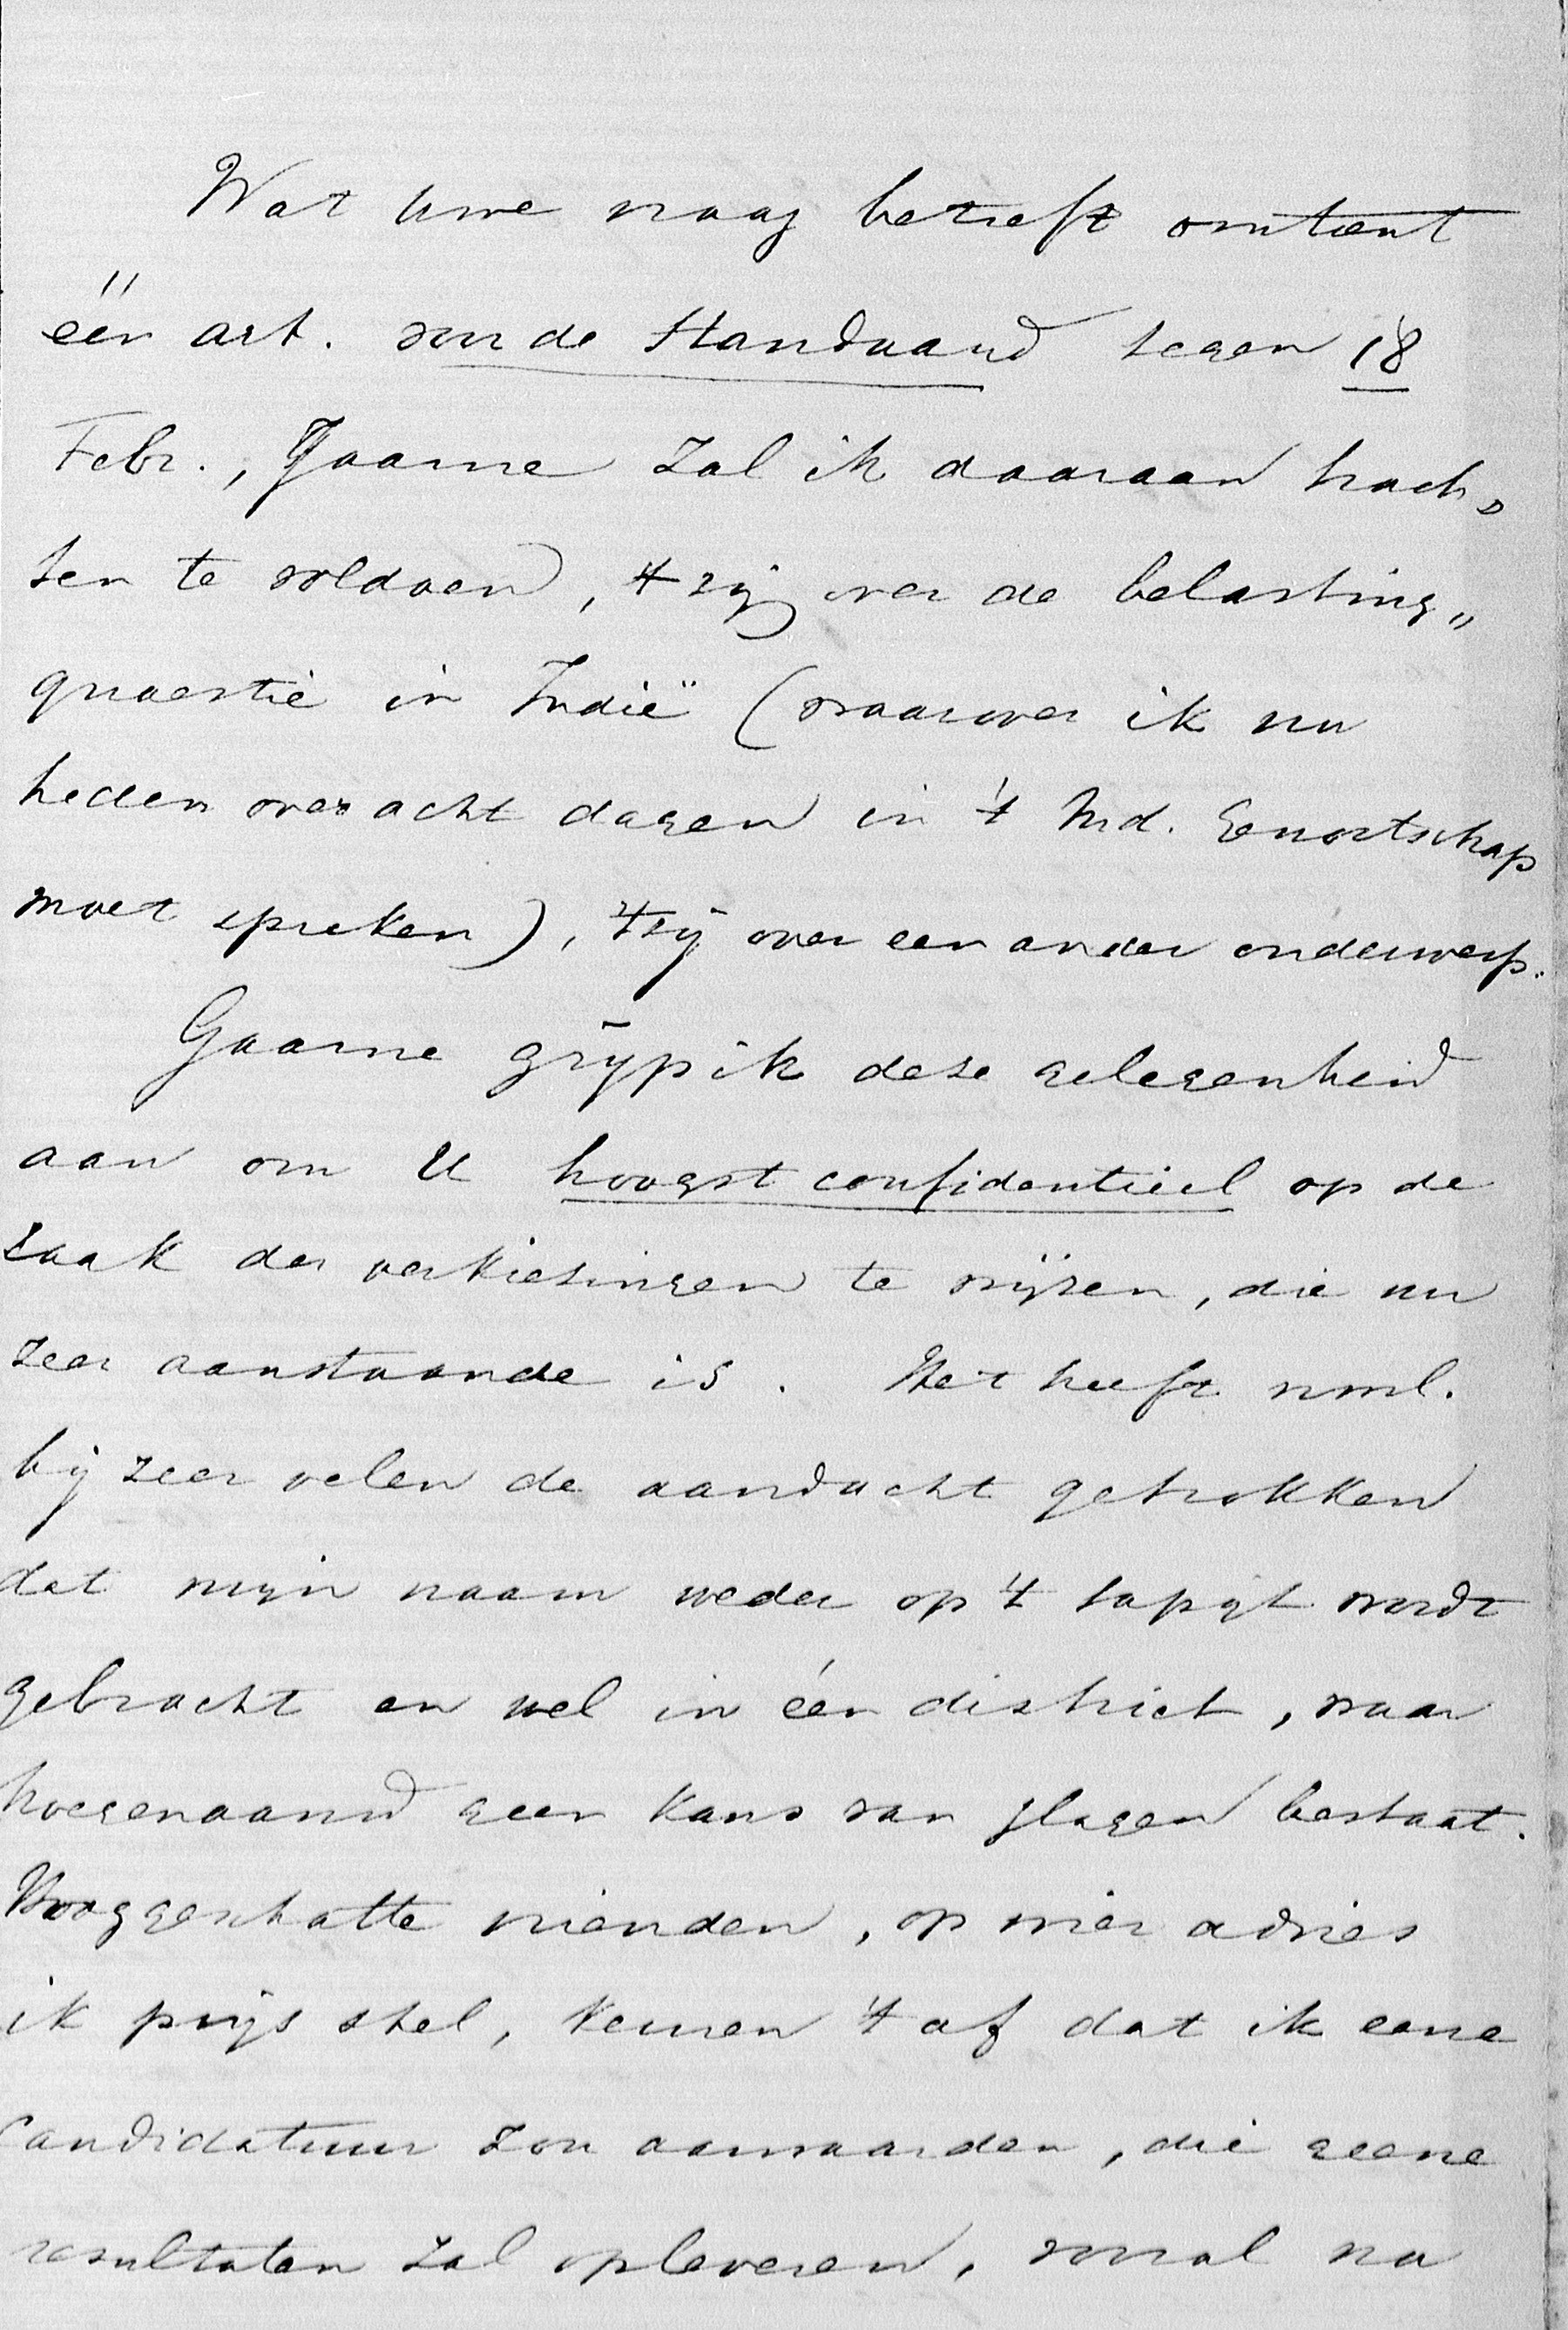 Wat uwe vraag betreft omtrent
één art. van de Standaard tegen 18
Febr., Gaarne zal ik daaraan trach„
ten te voldoen, 't zij over de belasting„
quaestie in Indië (waarover ik nu
heden over acht dagen in 't Ind. Genootschap
moet spreken), 't zij over een ander onderwerp.
Gaarne grijp ik deze gelegenheid
aan om U hoogst confidentieel op de
zaak der verkiezingen te wijzen, die nu
zeer aanstaande is. Het heeft nml.
bij zeer velen de aandacht getrokken
dat mijn naam weder op 't tapijt wordt
gebracht en wel in één district, waar
hoegenaamd geen kans van slagen bestaat.
Hooggeschatte vrienden, op wier advies
ik prijs stel, keuren 't af dat ik eene
Candidatuur zou aanvaarden, die geene
resultaten zal opleveren, vooral na